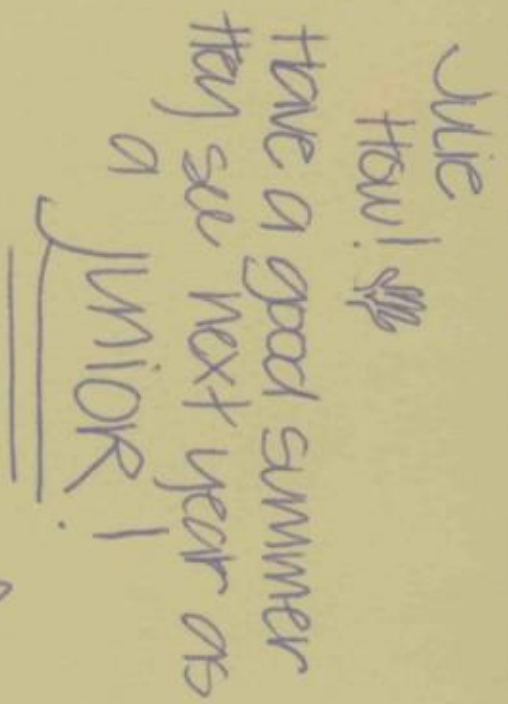 Julie
How!
Have a good summer
Hey see next year as
a JUNIOR!